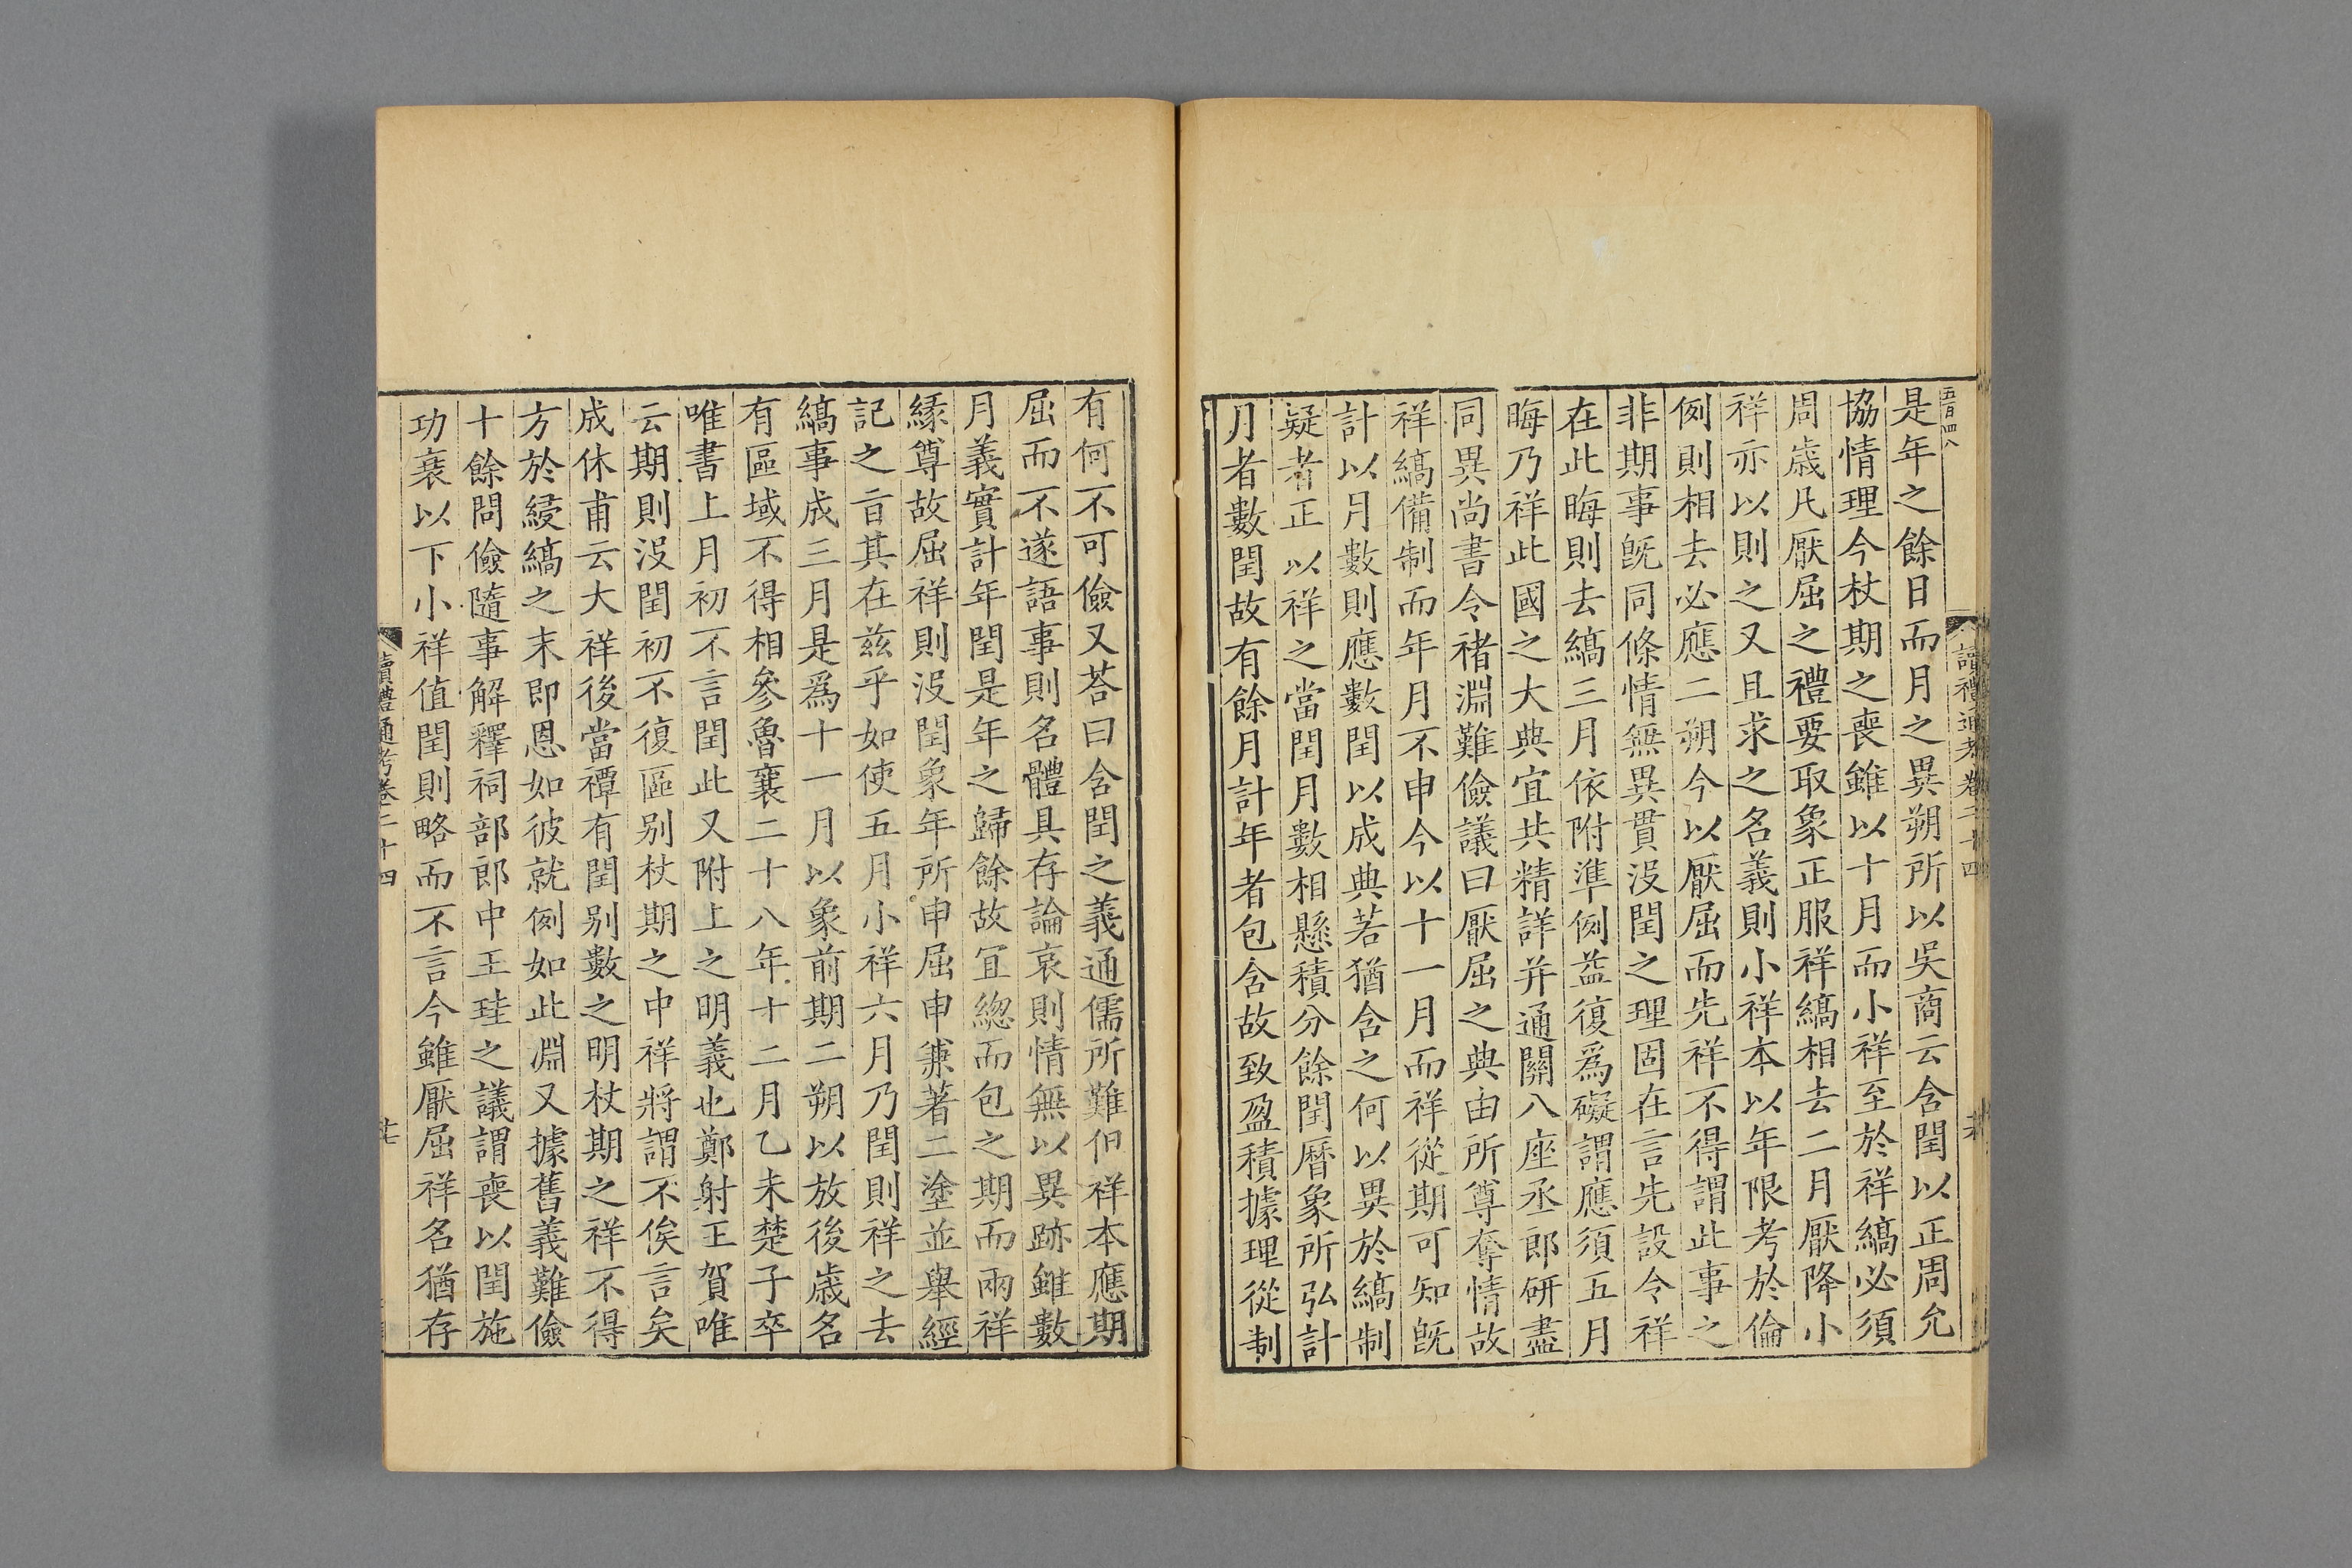 五百四八
讀禮通考卷二十四
是年之餘日而月之異朔所以吳商云含閏以正周允
協情理今杖期之喪雖以十月而小祥至於祥縞必須
周歲凡厭屈之禮要取象正服祥縞相去二月厭降小
祥亦以則之又且求之名義則小祥本以年限考於倫
例則相去必應二朔今以厭屈而先祥不得謂此事之
非期事既同條情無異貫沒閏之理固在言先設令祥
在此晦則去縞三月依附準例益復爲礙謂應須五月
晦乃祥此國之大典宜共精詳并通關八座丞郎研盡
同異尚書令褚淵難儉議曰厭屈之典由所尊奪情故
祥縞備制而年月不申今以十一月而祥從期可知既
計以月數則應數閏以成典若猶含之何以異於縞制
疑者正以祥之當閏月數相懸積分餘閏曆象所弘計
月者數閏故有餘月計年者包含故致盈積據理從制
有何不可儉又荅曰含閏之義通儒所難但祥本應期
屈而不遂語事則名體具存論哀則情無以異跡雖數
月義實計年閏是年之歸餘故宜總而包之期而兩祥
緣尊故屈祥則沒閏象年所申屈申兼著二塗並舉經
記之旨其在茲乎如使五月小祥六月乃閏則祥之去
縞事成三月是爲十一月以象前期二朔以放後歲名
有區域不得相參魯襄二十八年十二月乙未楚子卒
唯書上月初不言閏此又附上之明義也鄭射王賀唯
云期則沒閏初不復區别杖期之中祥將謂不俟言矣
成休甫云大祥後當禫有閏别數之明杖期之祥不得
方於綅縞之末即恩如彼就例如此淵又據舊義難儉
十餘問儉隨事解釋祠部郎中王珪之議謂喪以閏施
功衰以下小祥值閏則略而不言今雖厭屈祥名猶存
讀禮通考卷二十四
廿七